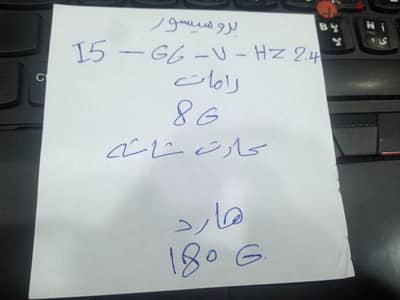 بروسيسور
I5 - G6 - U - HZ 2.4
رامات
8G
كارت شاشه
هارد
180 G.